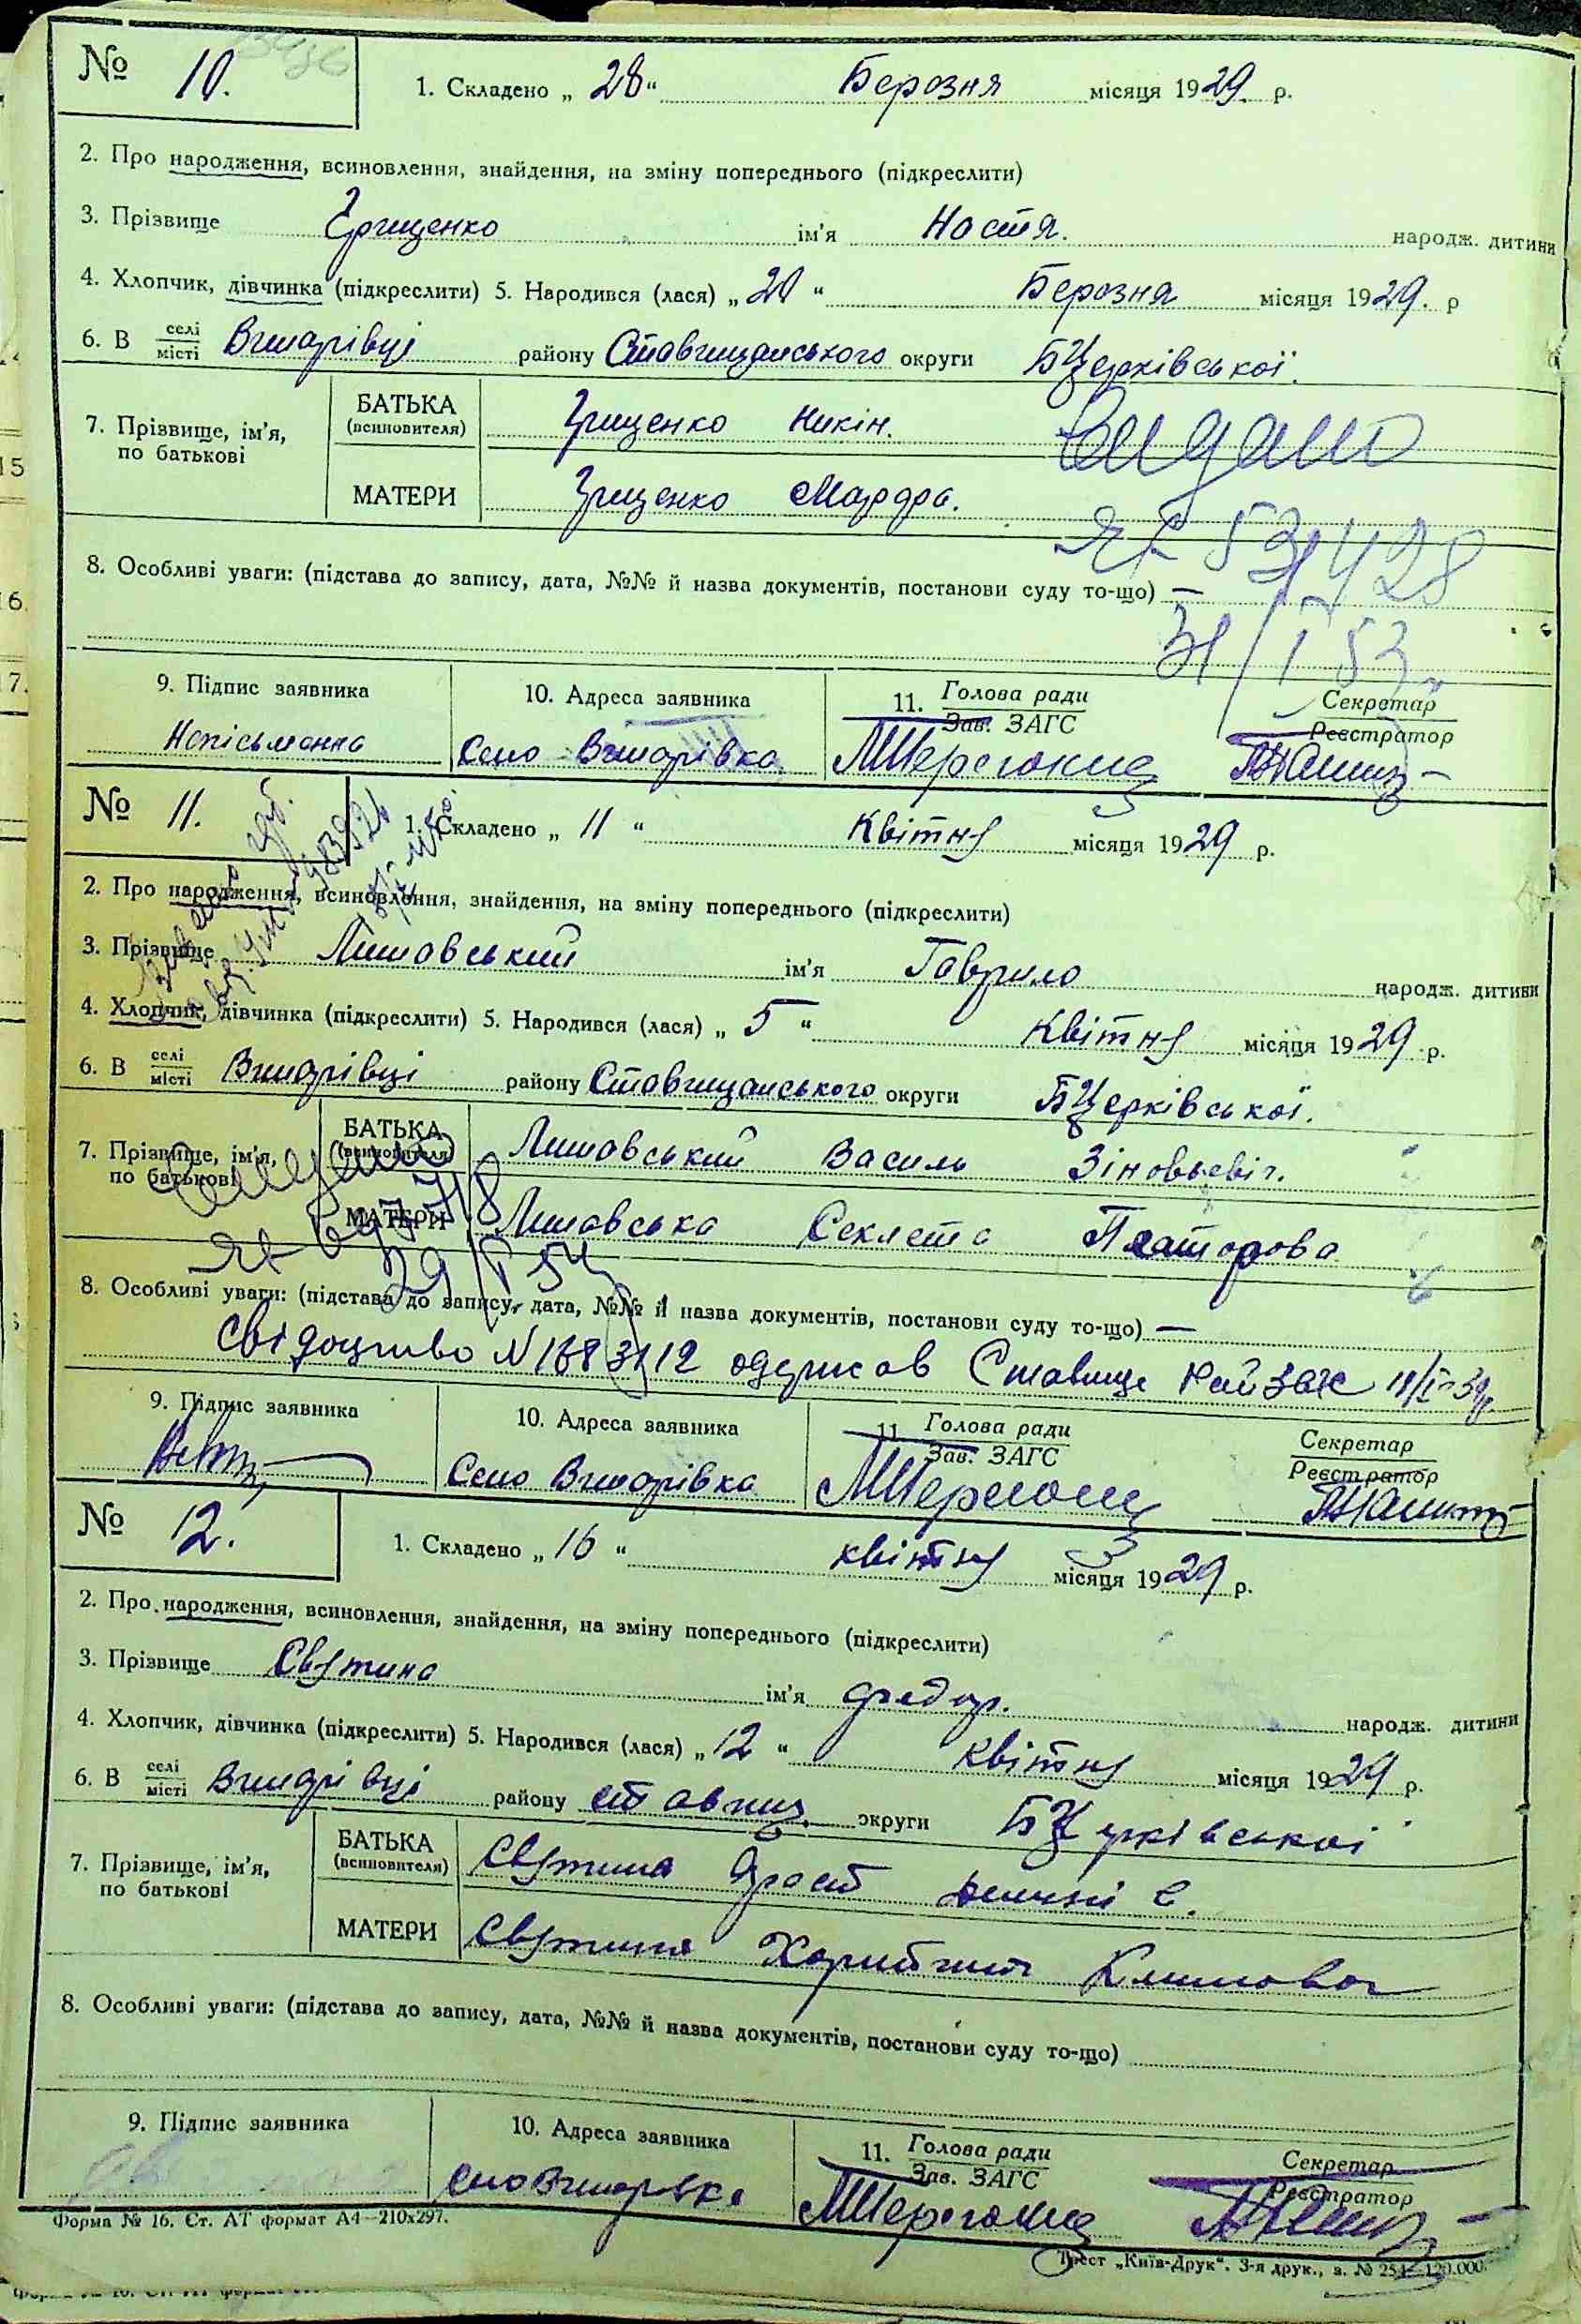 № 10.
1. Складено „ 28 “ Березня місяця 1929. р.
2. Про народження, всиновлення, знайдення, на зміну попереднього (підкреслити)
3. Прізвище Грищенко ім'я Настя. народж. дитини
4. Хлопчик, дівчинка (підкреслити) 5. Народився (лася) „ 20 “ Березня місяця 1929. р
6. В селі місті Вишарівці району Ставищанського округи БЦерківської.
7. Прізвище, ім'я, по батькові БАТЬКА (всиновителя) Грищенко Никін.
МАТЕРИ Грищенко Марфа.
Видано
8. Особливі уваги: (підстава до запису, дата, №№ й назва документів, постанови суду то-що) —
31/I 53
9. Підпис заявника 10. Адреса заявника 11. Голова ради Зав. ЗАГС Секретар Реєстратор
Непісьменна Село Вишарівка
№ 11.
1. Складено „ 11 “ Квітня місяця 1929 р.
2. Про народження, всиновлення, знайдення, на зміну попереднього (підкреслити)
3. Прізвище Лишавський ім'я Гаврило народж. дитини
4. Хлопчик, дівчинка (підкреслити) 5. Народився (лася) „ 5 “ Квітня місяця 1929 р.
6. В селі місті Вишарівці району Ставищанського округи БЦерківської.
7. Прізвище, ім'я, по батькові БАТЬКА (всиновителя) Лишавський Василь Зіновьевіч.
МАТЕРИ Лишавська Секлета Платорова
8. Особливі уваги: (підстава до запису, дата, №№ й назва документів, постанови суду то-що) —
Свідоцтво N 1683112 одержав Ставище Рай ЗАГС
9. Підпис заявника 10. Адреса заявника 11. Голова ради Зав. ЗАГС Секретар Реєстратор
Село Вишарівка
№ 12.
1. Складено „ 16 “ квітня місяця 1929 р.
2. Про народження, всиновлення, знайдення, на зміну попереднього (підкреслити)
3. Прізвище Святина ім'я Федор. народж. дитини
4. Хлопчик, дівчинка (підкреслити) 5. Народився (лася) „ 12 “ квітня місяця 1929 р.
6. В селі місті Вишарівці району Ставищ. округи БЦерківської
7. Прізвище, ім'я, по батькові БАТЬКА (всиновителя) Святина
МАТЕРИ Святина Харитина Климовна
8. Особливі уваги: (підстава до запису, дата, №№ й назва документів, постанови суду то-що)
9. Підпис заявника 10. Адреса заявника 11. Голова ради Зав. ЗАГС Секретар Реєстратор
село Вишарівка
Форма № 16. Ст. АТ формат А4—210x297.
Трест „Київ-Друк“. 3-я друк., з. № 254—120.000.